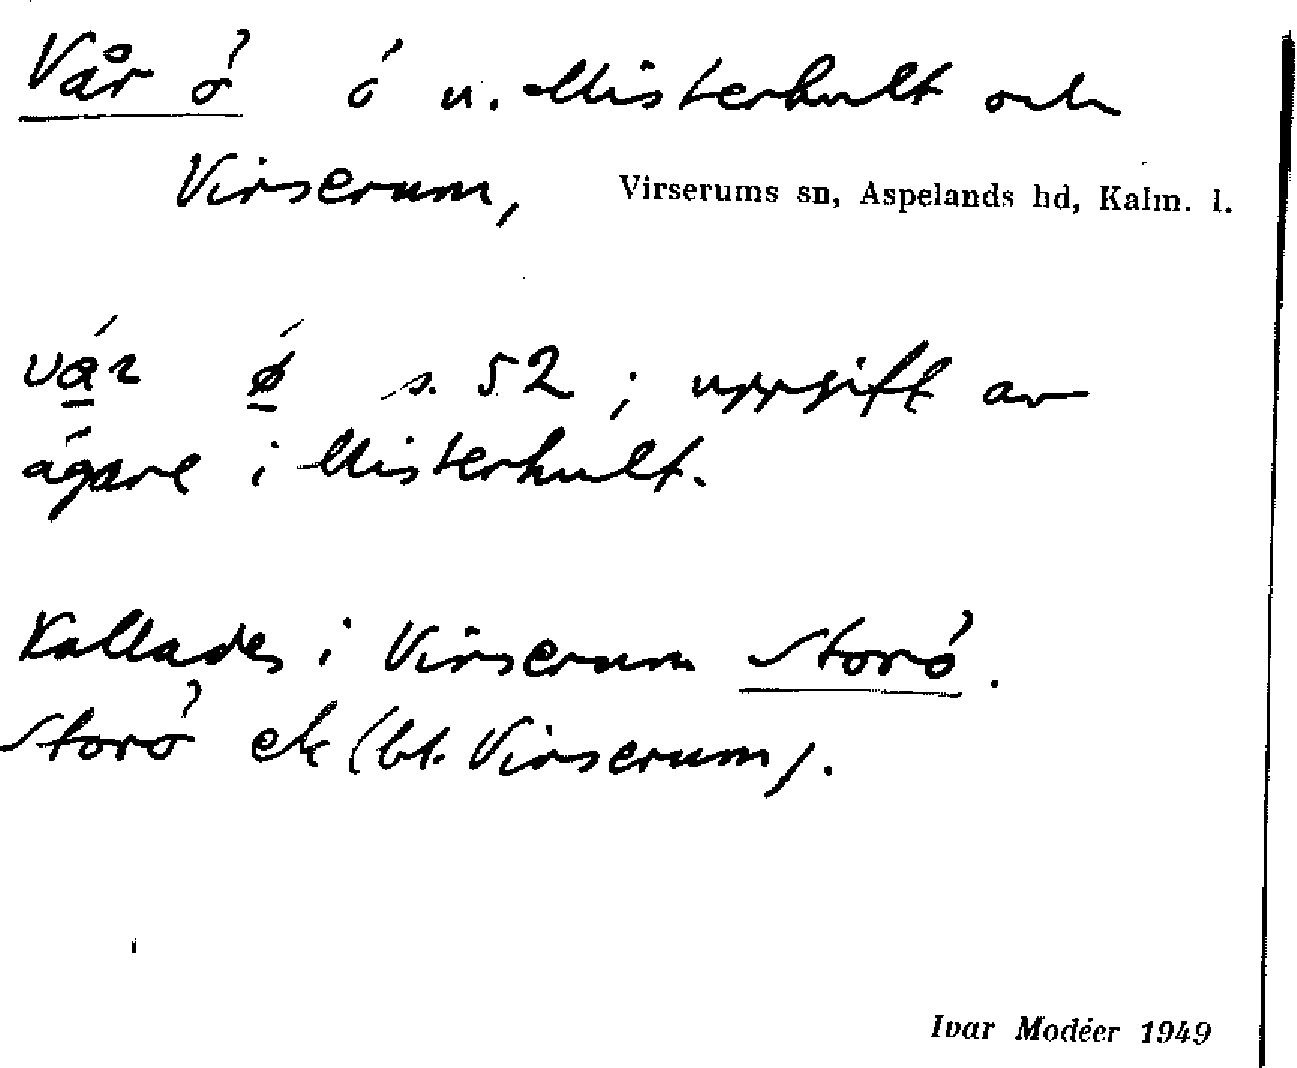 Vår ö ö u. Misterhult och
Virserum, Virserums sn, Aspelands hd, Kalm. l.
vár ǿ s. 52 ; uppgift av
ägare i Misterhult.
Kallades i Virserum Storö.
Storö ek (bl. Virserum).
Ivar Modéer 1949